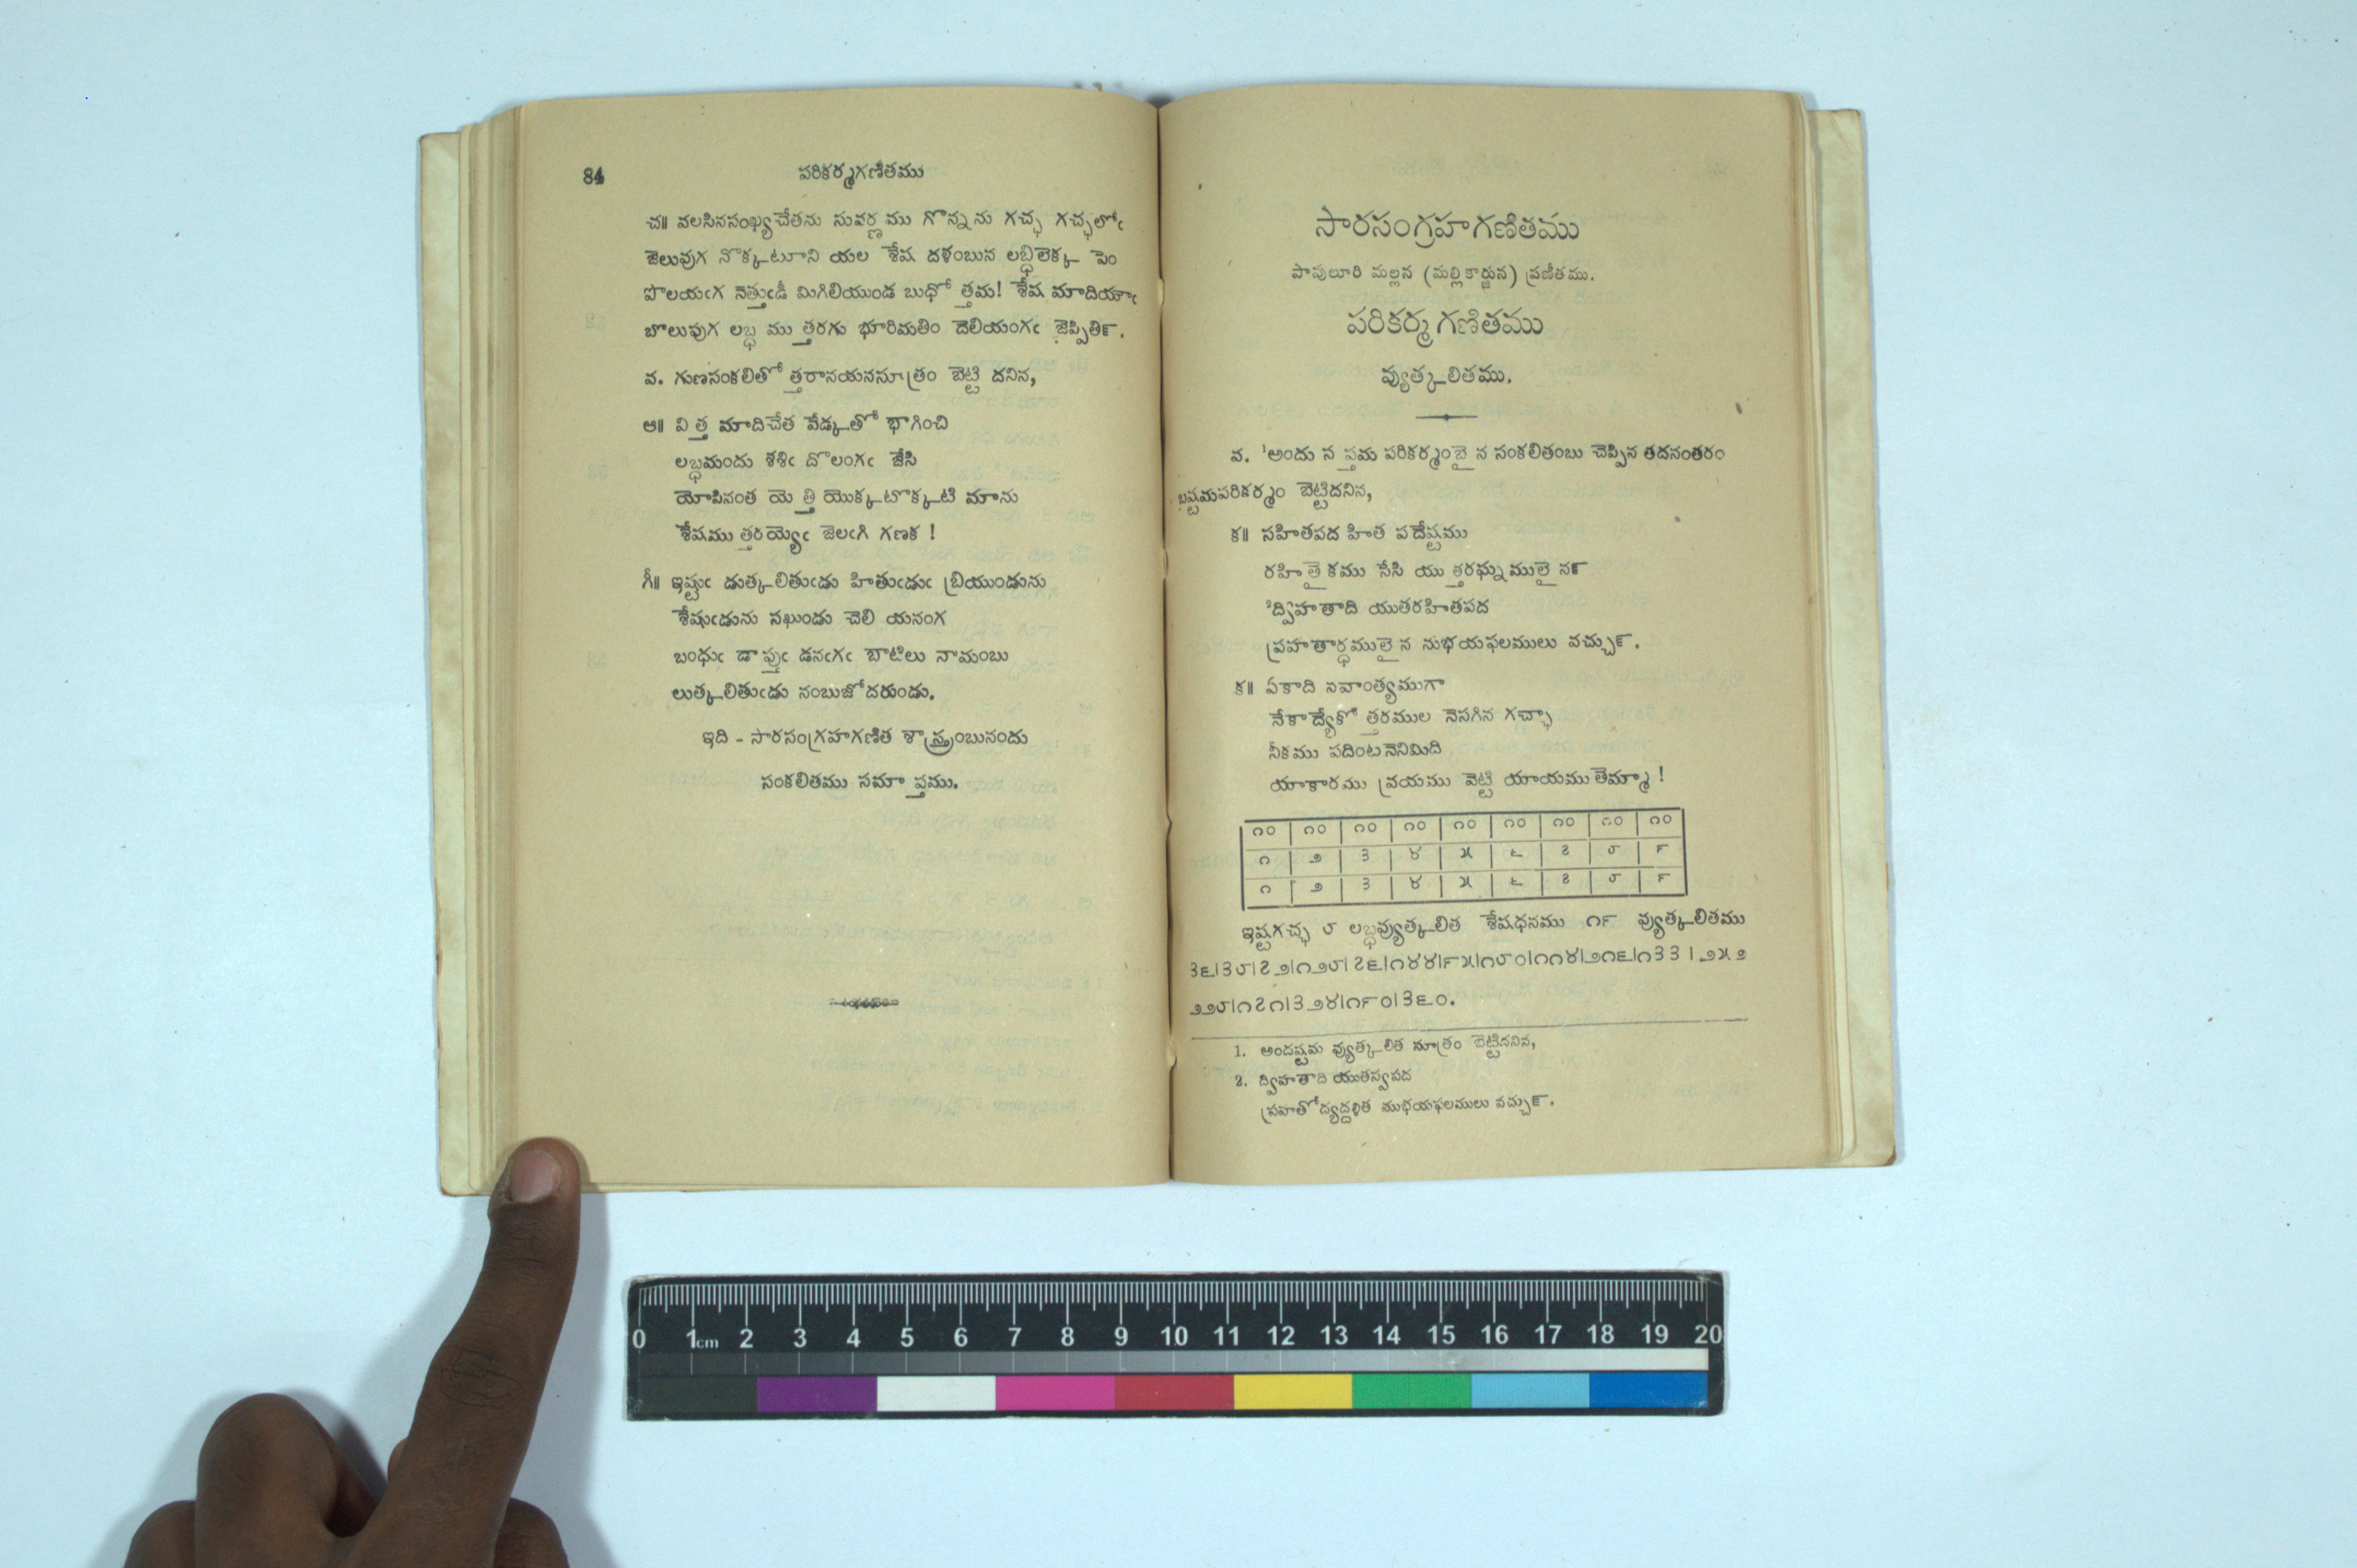 84
పరికర్మగణితము
చ॥ వలసినసంఖ్యచేతను సువర్ణము గొన్నను గచ్ఛ గచ్ఛలోఁ
జెలువుగ నొక్కటూని యల శేష దళంబున లబ్ధిలెక్క పెం
పొలయఁగ నెత్తుఁడీ మిగిలియుండ బుధోత్తమ! శేష మాదియాఁ
బొలుపుగ లబ్ధ ముత్తరగు భూరిమతిం దెలియంగఁ జెప్పితి౯.
వ. గుణసంకలితోత్తరానయనసూత్రం బెట్టి దనిన,
ఆ॥ విత్త మాదిచేత వేడ్కతో భాగించి
లబ్ధమందు శశిఁ దొలంగఁ జేసి
యోపినంత యెత్తి యొక్కటొక్కటి మాను
శేషము త్తరయ్యెఁ జెలఁగి గణక !
గీ॥ ఇష్టుఁ డుత్కలితుఁడు హితుఁడుఁ బ్రియుండును
శేషుఁడును సఖుండు చెలి యనంగ
బంధుఁ డాప్తుఁ డనఁగఁ బాటిలు నామంబు
లుత్కలితుఁడు నంబుజోదరుండు.
ఇది - సారసంగ్రహగణిత శాస్త్రంబునందు
సంకలితము సమాప్తము.
సారసంగ్రహగణితము
పావులూరి మల్లన (మల్లికార్జున) ప్రణీతము.
పరికర్మగణితము
వ్యుత్కలితము.
వ. ¹అందు సప్తమ పరికర్మంబైన సంకలితంబు చెప్పిన తదనంతరం
బష్టమపరికర్మం బెట్టిదనిన,
క॥ సహితపద హిత పదేష్టము
రహితైకము సేసి యుత్తరఘ్నములైన౯
²ద్విహతాది యుతరహితపద
ప్రహతార్ధములైన నుభయఫలములు వచ్చు౯.
క॥ ఏకాది నవాంత్యముగా
నేకాద్యేకోత్తరముల నెసగిన గచ్ఛా
నీకము పదింటనెనిమిది
యాకారము వ్రయము వెట్టి యాయముతెమ్మా !
౧౦ ౧౦ ౧౦ ౧౦ ౧౦ ౧౦ ౧౦ ౧౦ ౧౦
౧ ౨ ౩ ౪ ౫ ౬ ౭ ౮ ౯
౧ ౨ ౩ ౪ ౫ ౬ ౭ ౮ ౯
ఇష్టగచ్ఛ ౮ లబ్ధవ్యుత్కలిత శేషధనము ౧౯ వ్యుత్కలితము
౩౬|౩౮|౭౨|౧౨౮|౭౬|౧౪౪|౯౫|౧౮౦|౧౧౪|౨౧౬|౧౩౩|౨౫౨
౨౨౮|౧౭౧|౩౨౪|౧౯౦|౩౬౦.
1. అందష్టమ వ్యుత్కలిత సూత్రం బెట్టిదనిన,
2. ద్విహతాది యుతస్వపద
ప్రహతోద్యద్దళిత ముభయఫలములు వచ్చు౯.
0 1cm 2 3 4 5 6 7 8 9 10 11 12 13 14 15 16 17 18 19 20